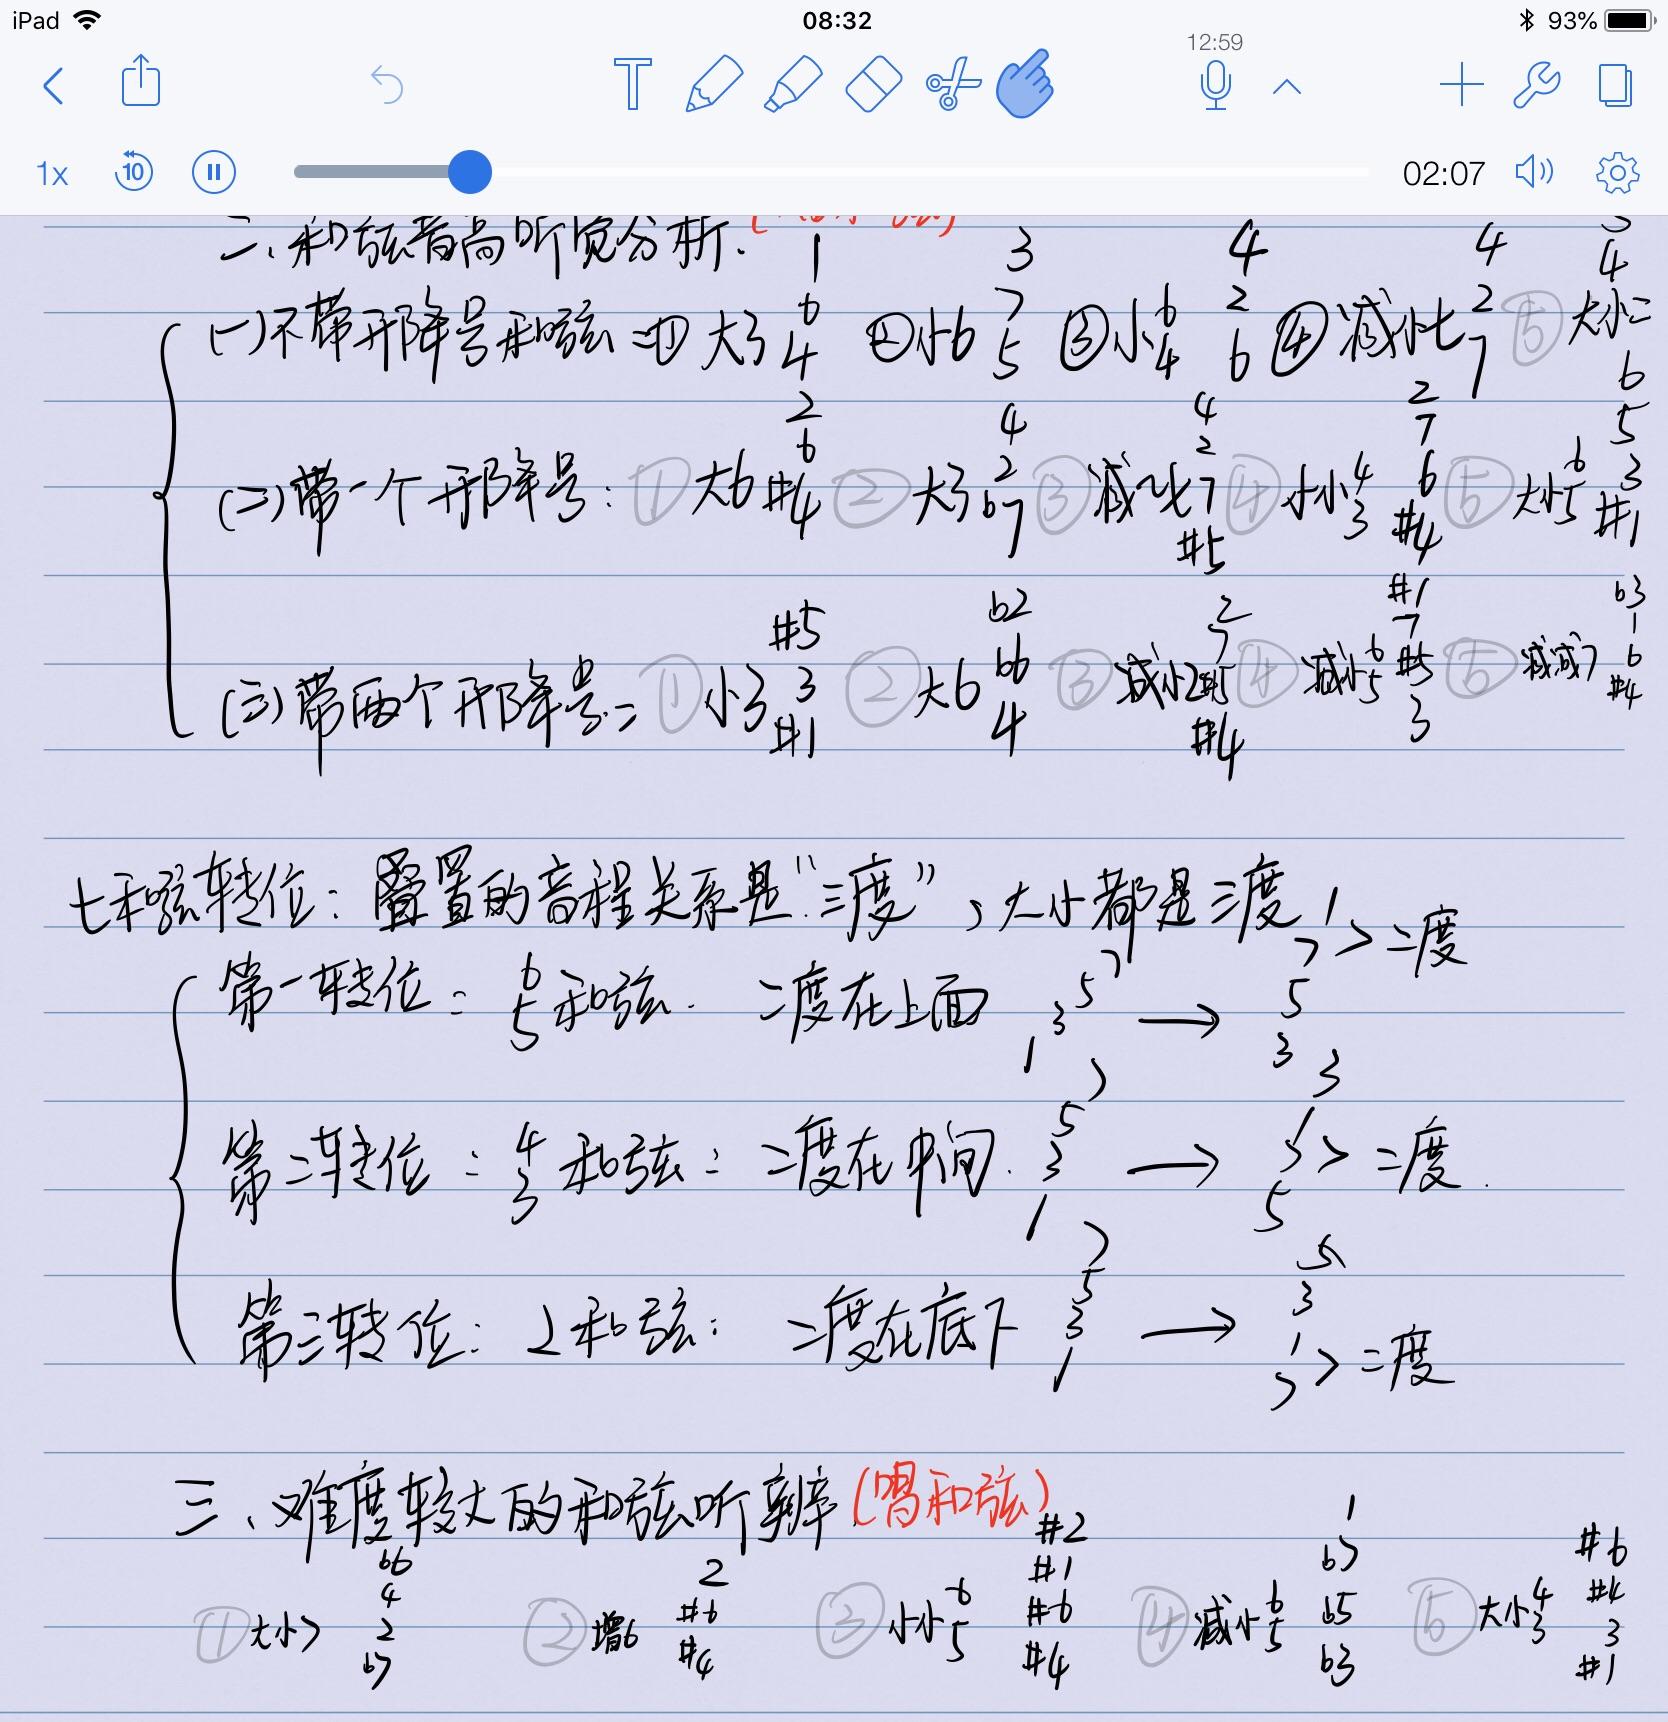 iPad 08:32 93%
12:59
1x 10 02:07
二、和弦音高听觉分析.
1 3 4 4 4
(一)不带升降号和弦: ① 大3 6 4 ② 小6 7 5 ③ 小6 4 2 6 ④ 减小七 2 7 ⑤ 大小二
2 4 4 2 7 6 5
(二)带一个升降号: ① 大6 6 #4 ② 大3 2 b7 ③ 减小七 2 7 #5 ④ 小小4 3 6 #4 ⑤ 大小6 5 3 #1
#5 b2 2 #1 7 b3 1
(三)带两个升降号: ① 小3 3 #1 ② 大6 b6 4 ③ 减小2 7 #5 #4 ④ 减小6 5 #5 3 ⑤ 减减7 6 #4
七和弦转位: 叠置的音程关系是“三度”, 大小都是三度
第一转位: 6 5 和弦. 二度在上面 1 3 5 7 → 3 5 7 1 > 二度
第二转位: 4 3 和弦: 二度在中间. 1 3 5 7 → 5 7 1 3 > 二度.
第三转位: 2 和弦: 二度在底下 1 3 5 7 → 7 1 3 5 > 二度
三、难度较大的和弦听辨 (唱和弦)
① 大小7 b6 4 2 b7 ② 增6 2 #6 #4 ③ 小小6 5 #2 #1 #6 #4 ④ 减小6 5 1 b7 b5 b3 ⑤ 大小4 3 #6 #4 3 #1